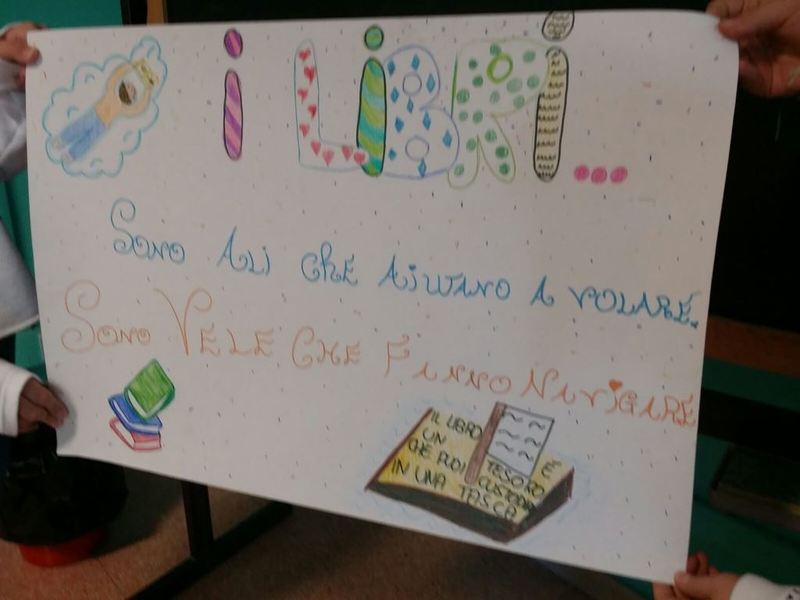 i LiBRi...
SONO ALI CHE AIUTANO A VOLARE.
SONO VELE CHE FANNO NAVIGARE
IL LIBRO È
UN TESORO
CHE PUOI CUSTODIRE
IN UNA TASCA